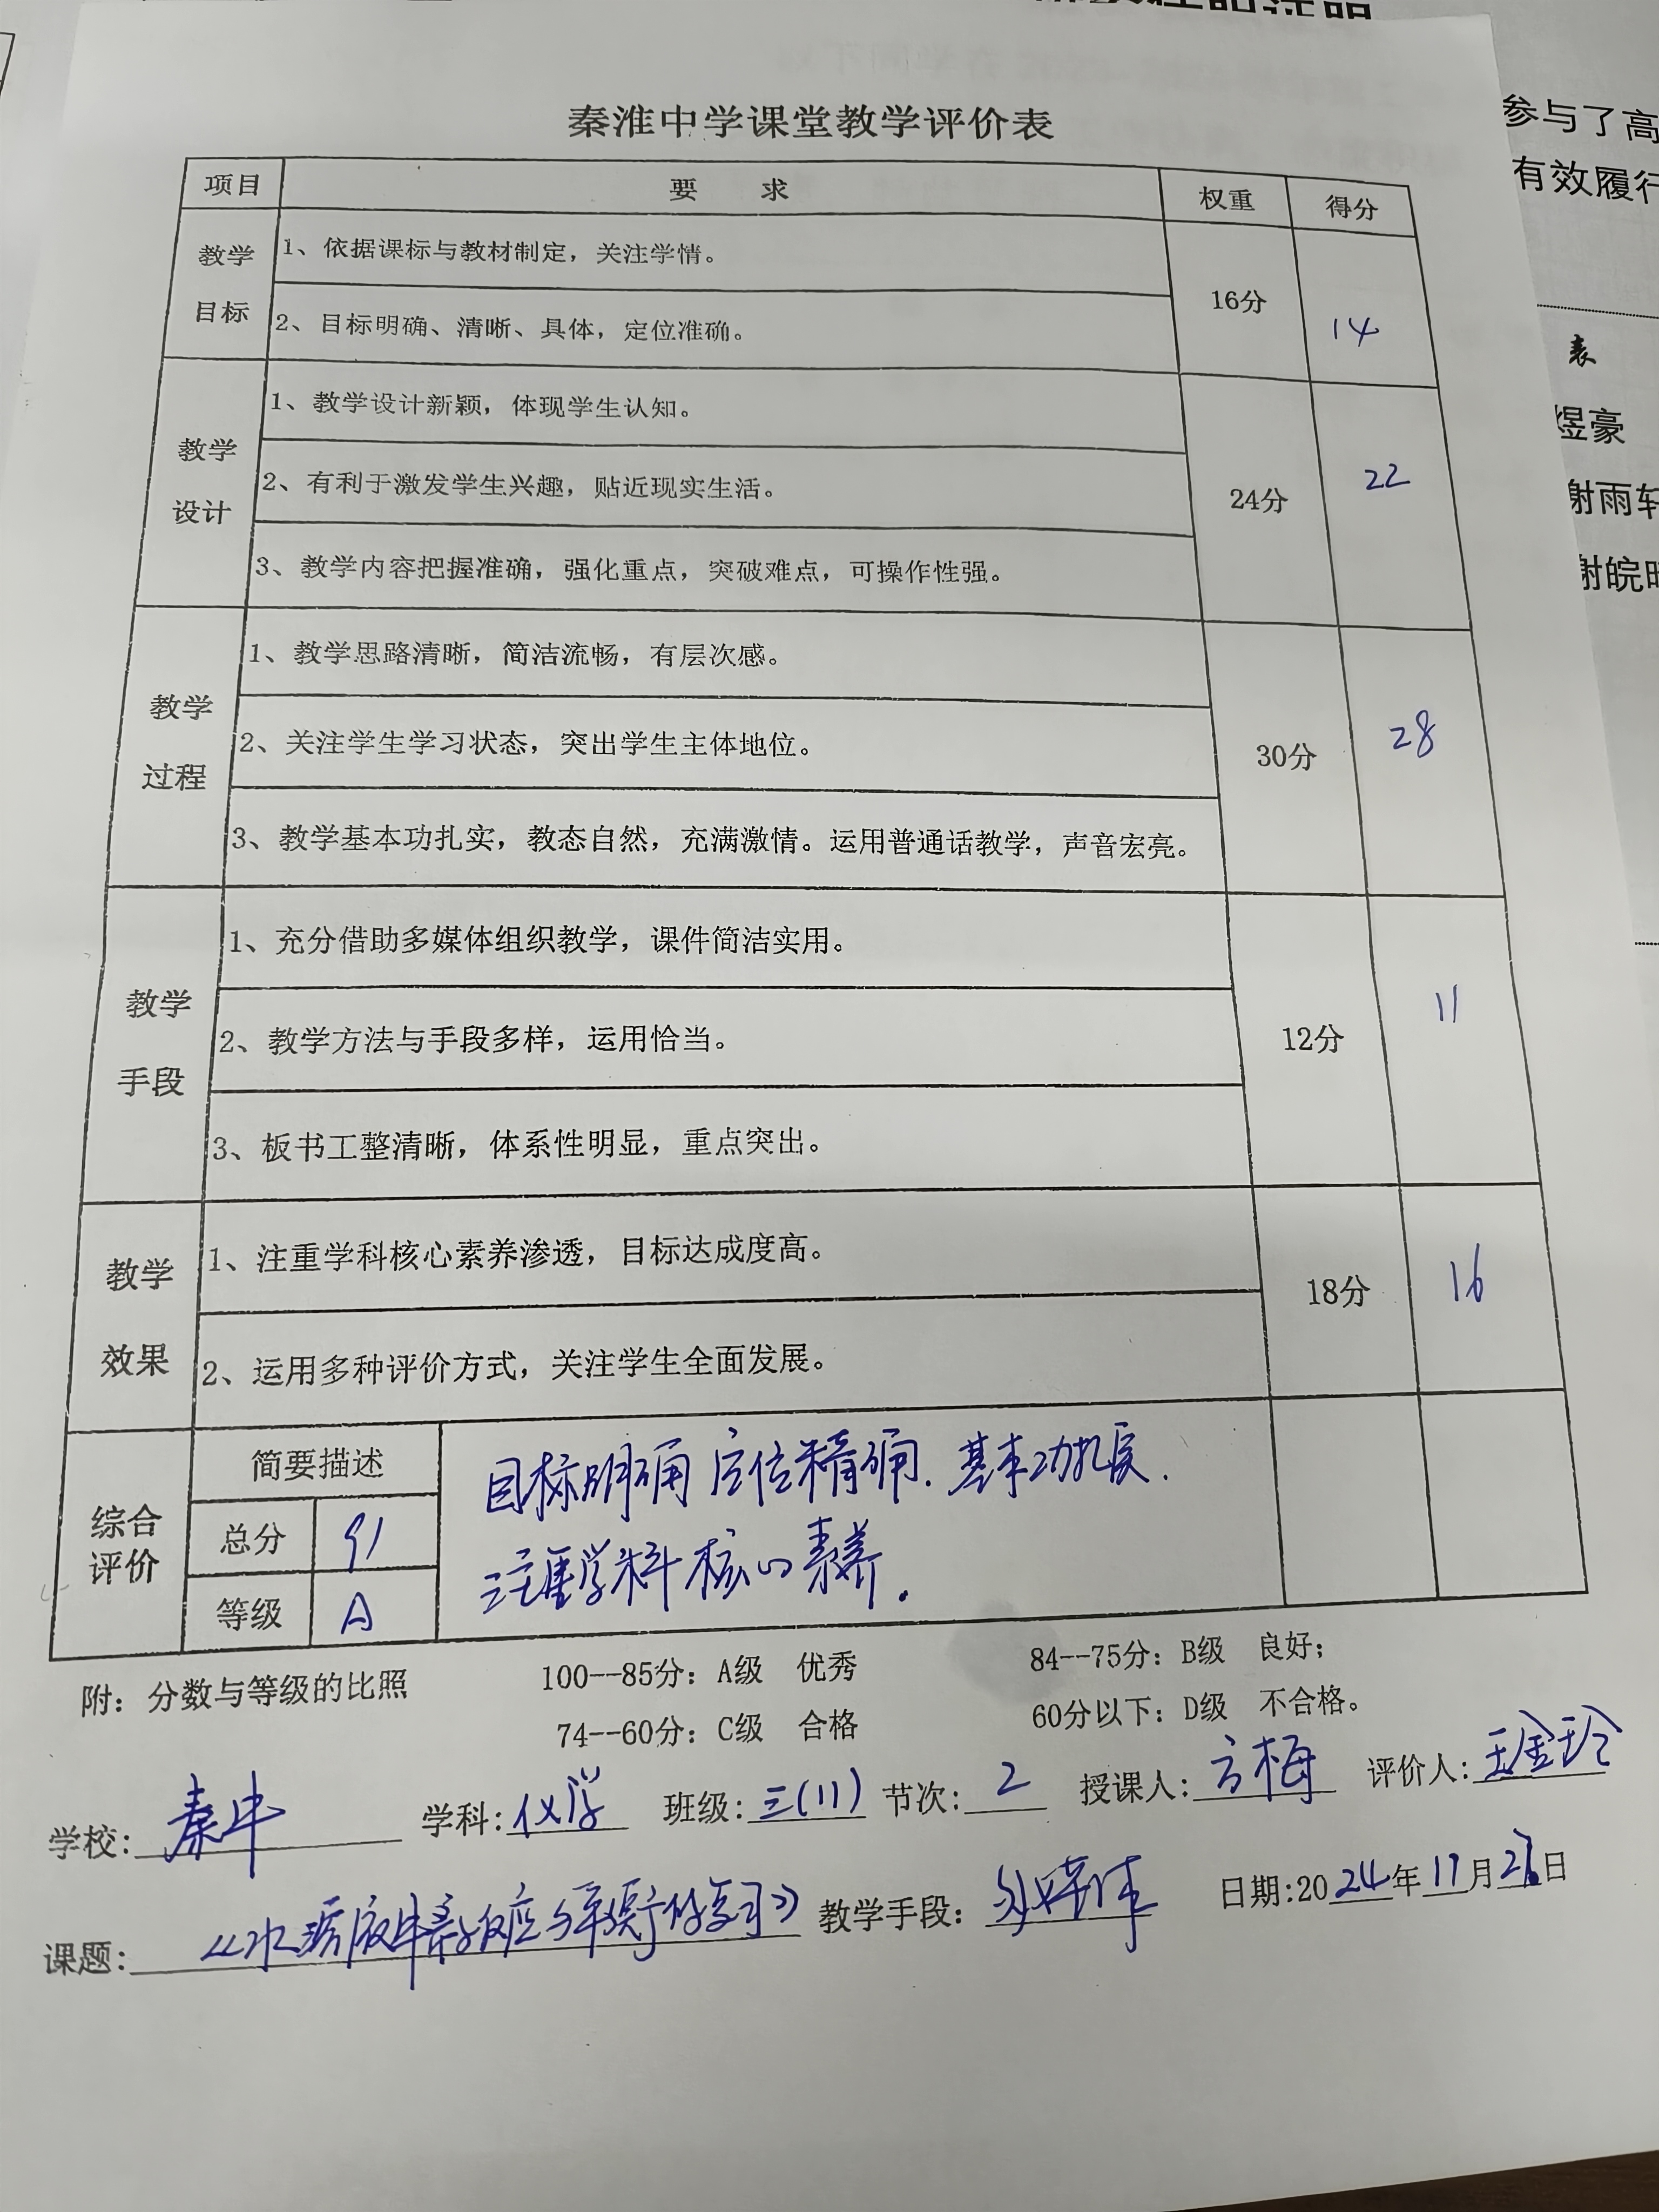 秦淮中学课堂教学评价表
项目 要 求 权重 得分
教学目标 1、依据课标与教材制定，关注学情。 16分 14
2、目标明确、清晰、具体，定位准确。
教学设计 1、教学设计新颖，体现学生认知。 24分 22
2、有利于激发学生兴趣，贴近现实生活。
3、教学内容把握准确，强化重点，突破难点，可操作性强。
教学过程 1、教学思路清晰，简洁流畅，有层次感。 30分 28
2、关注学生学习状态，突出学生主体地位。
3、教学基本功扎实，教态自然，充满激情。运用普通话教学，声音宏亮。
教学手段 1、充分借助多媒体组织教学，课件简洁实用。 12分 11
2、教学方法与手段多样，运用恰当。
3、板书工整清晰，体系性明显，重点突出。
教学效果 1、注重学科核心素养渗透，目标达成度高。 18分 16
2、运用多种评价方式，关注学生全面发展。
综合评价 简要描述 目标明确 定位精确. 基本功扎实.
总分 91 注重学科核心素养.
等级 A
附：分数与等级的比照 100--85分：A级 优秀 84--75分：B级 良好；
74--60分：C级 合格 60分以下：D级 不合格。
学校: 秦中 学科: 化学 班级: 三(11) 节次: 2 授课人: 方梅 评价人: 王金玲
课题: 《水溶液中离子反应与平衡的复习》 教学手段: 多媒体 日期:2024年11月 日
参与了高
有效履行
表
煜豪
谢雨轩
谢皖